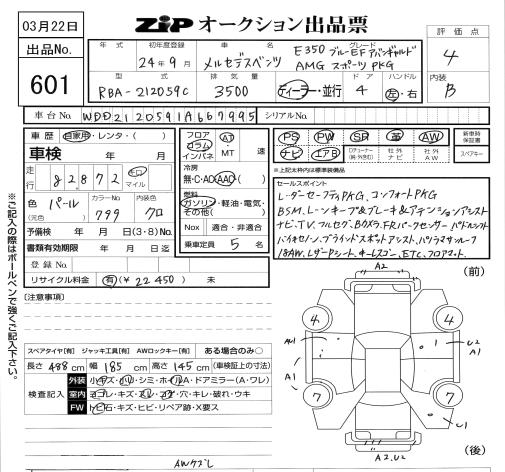 03月22日
ZIP オークション出品票
評価点
4
出品No.
601
年式
初年度登録
24年9月
車名
メルセデスベンツ
グレード
E350 ブルーEFアバンギャルド
AMG スポーツPKG
型式
RBA-212059C
排気量
3500
ディーラー・並行
ドア
4
ハンドル
左・右
内装
B
車台No. WDD2120591A667995
シリアルNo.
車歴 自家用・レンタ・( )
車検 年 月
走行 82872 キロ マイル
色(元色) パール
カラーNo. 799
内装色 クロ
予備検 年 月 日(3・8)No.
書類有効期限 年 月 日迄
登録No.
リサイクル料金 有(¥22450) 未
フロア コラム インパネ AT・MT 速
冷房 無・C・AC・AAC
燃料 ガソリン・軽油・電気・その他( )
Nox 適合・非適合
乗車定員 5 名
PS PW SR 革 AW
新車時保証書
ナビ エアB
社外ナビ
社外AW
スペアキー
※上記太枠内は標準装備品
セールスポイント
レーダーセーフティPKG、コンフォートPKG
ナビ、TV、フルセグ、Bカメラ、FRパークセンサー パドルシフト
バイキセノン、ブラインドスポットアシスト、パノラマサンルーフ
18AW、レザーPシート、キーレスゴー、ETC、フロアマット
※ご記入の際はボールペンで強くご記入下さい。
[注意事項]
スペアタイヤ[有] ジャッキ工具[有] AWロックキー[有] ある場合のみ○
長さ 488 cm 幅 185 cm 高さ 145 cm (車検証上の寸法)
検査記入
外装 小キズ・凹・シミ・ホイルA・ドアミラー(A・ワレ)
室内 ヨゴレ・キズ・スレ・コゲ・穴・キレ・破れ・ウキ
FW トビ石・キズ・ヒビ・リペア跡・X要ス
AWケズレ
(前)
A2
4
4
A1
U2
A1
7
7
U1
A2.U2
(後)